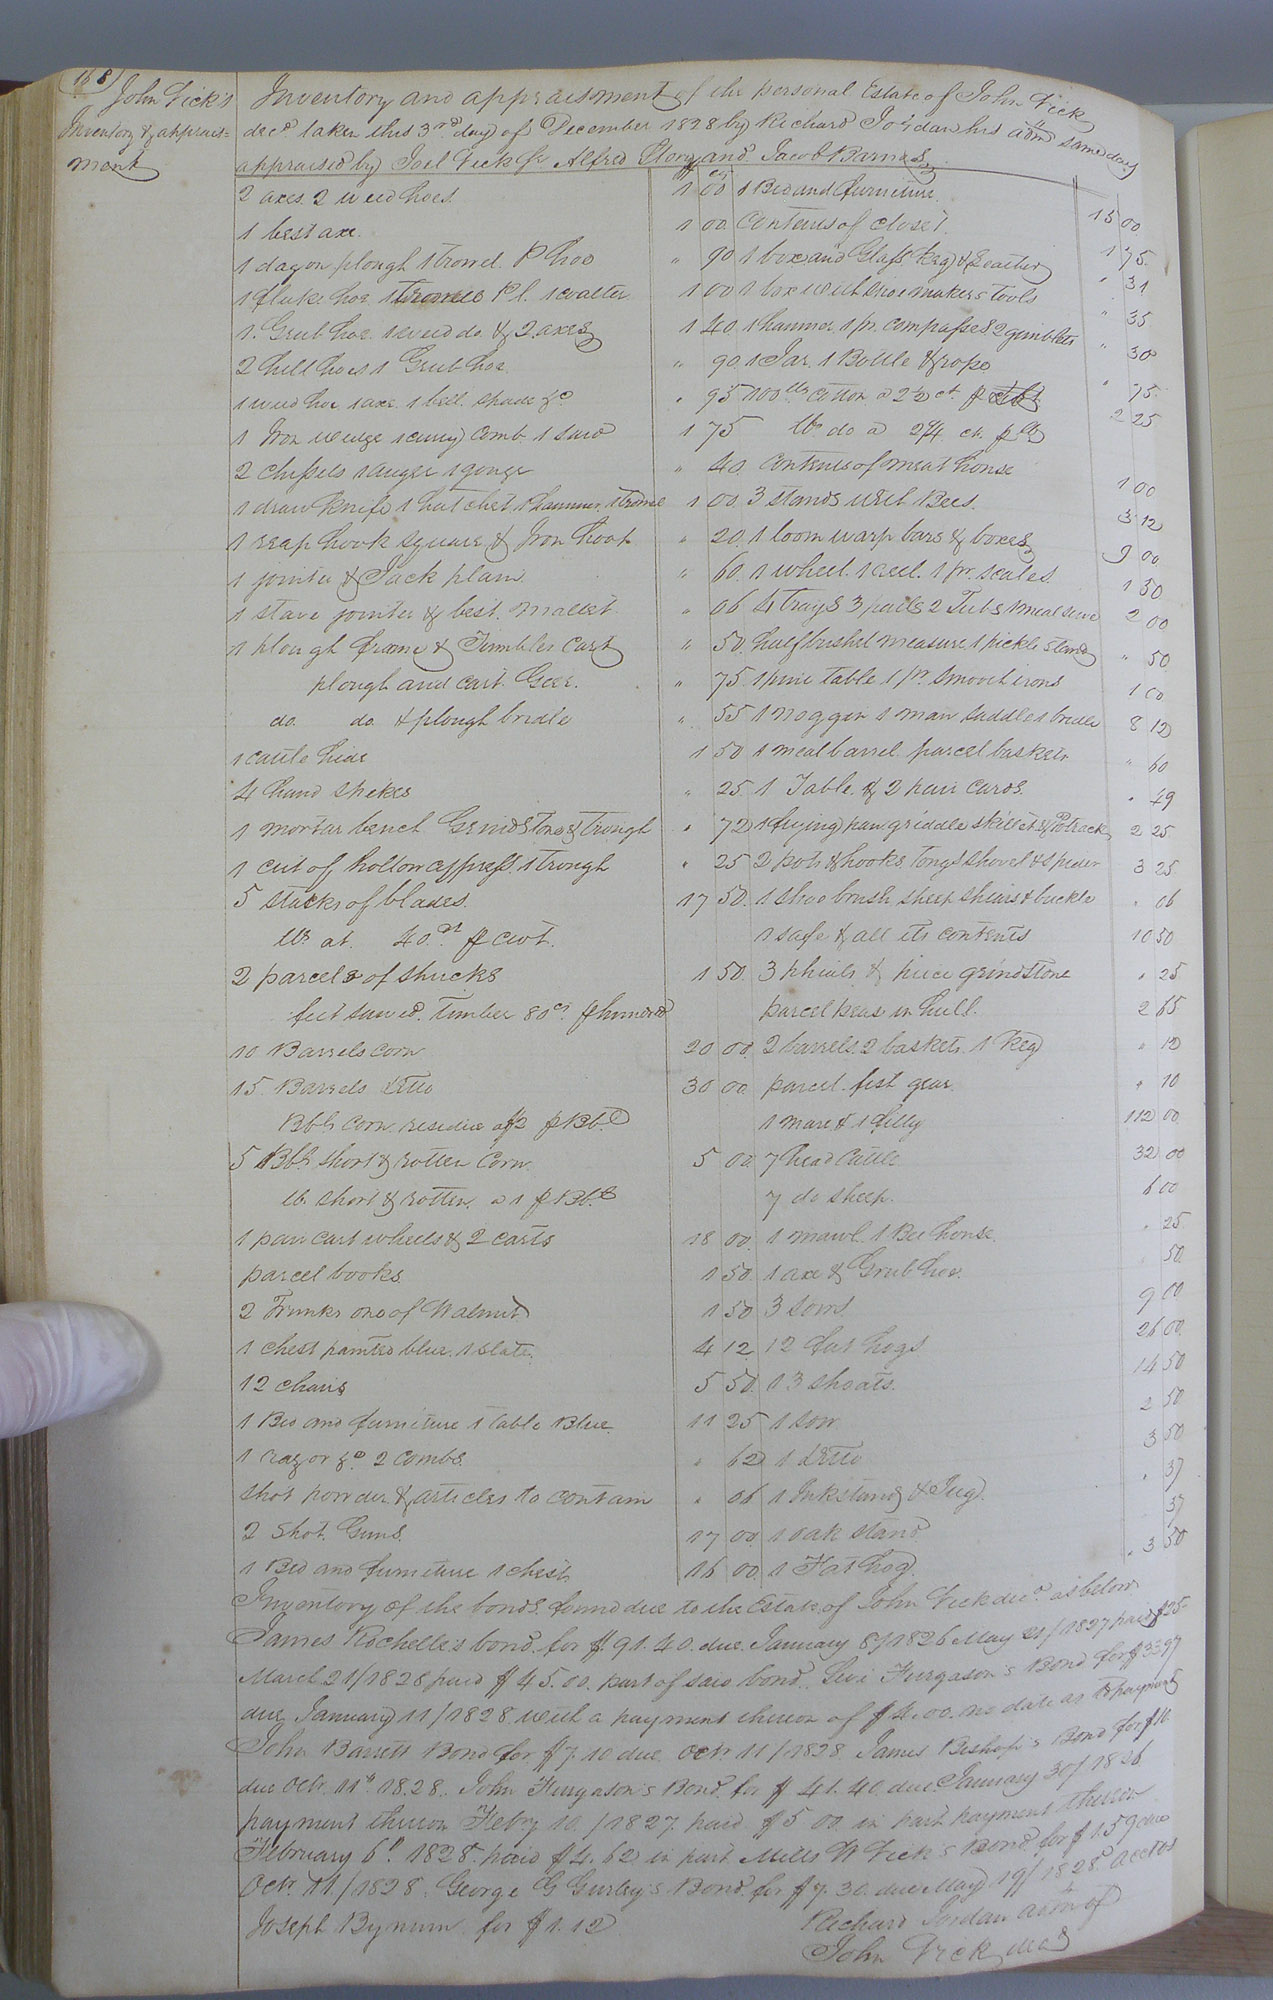 168
John Vick's
Inventory & appraisment
Inventory and appraisment of the personal Estate of John Vick
decd. taken this 3rd day of December 1828 by Richard Jordan his adm same day
appraised by Joel Vick Alfred Story and Jacob Barnes
2 axes 2 weed hoes 1 00
1 best axe 1 00
1 dagon plough 1 trowel P hoe " 90
1 fluke hoe 1 Pl. 1 coalter 1 00
1 Grub hoe 1 weed do. & 2 axes 1 40
2 hill hoes 1 Grub hoe " 90
1 weed hoe 1 axe 1 bell spade &c " 95
1 Iron wedge 1 curry comb 1 saw 1 75
2 chissels 1 auger 1 gouge " 40
1 draw knife 1 hatchet 1 hammer 1 1 00
1 reap hook square & Iron hoop " 20
1 jointer & Jack plain " 60
1 stave jointer & best mallet " 06
1 plough frame & Tumbler Cart " 50
plough and cart Geer " 75
do. do. & plough bridle " 55
1 cattle hide 1 50
4 hand spikes " 25
1 mortar bench Grindstone & trough " 72
1 cut of hollow cypress 1 trough " 25
5 stacks of blades 17 50
lbs at 40 cts p cwt.
2 parcels of shucks 1 50
feet sawed Timber 80 cts p hundred
10 Barrels corn 20 00
15 Barrels Ditto 30 00
Bbls corn residue at $2 p Bbl
5 Bbls short & rotten Corn 5 00
lb. short & rotten a 1 p Bbl
1 pair cart wheels & 2 carts 18 00
parcel books 1 50
2 Trunks one of Walnut 1 50
1 chest painted blue 1 slate 4 12
12 chairs 5 50
1 Bed and furniture 1 table Blue 11 25
1 razor &c. 2 combs " 62
Shot powder & articles to contain " 06
2 Shot Guns 17 00
1 Bed and furniture 1 chest 16 00
1 Bed and furniture 15 00
Contents of closet 1 75
1 box and Glass Keg & Leather " 31
1 box with shoemakers tools " 35
1 hammer 1 pr. compasses 2 gimblets " 30
1 Jar 1 Bottle & rope " 75
100 lbs cotton a 2½ ct p 2 25
lbs do a 2¼ ct. p lb
Contents of meat house 1 00
3 stands with Bees 3 12
1 loom warp bars & boxes 9 00
1 wheel 1 reel 1 pr. scales 1 50
4 trays 3 pails 2 Tubs 1 meal sieve 2 00
half bushel measure 1 pickle stand " 50
1 pine table 1 pr. smooth irons 1 00
1 noggin 1 man saddle 1 bridle 8 12
1 meal barrel parcel baskets " 60
1 Table & 2 pair cards " 49
1 frying pan griddle skillet & Potrack 2 25
2 pots & hooks Tongs Shovel & spider 3 25
1 shoe brush sheep shears & buckle " 06
1 safe & all its contents 10 50
3 phials & piece grindstone " 25
parcel peas in hull 2 65
2 barrels 2 baskets 1 Keg " 12
parcel fish gear " 10
1 mare & 1 filly 112 00
7 head Cattle 32 00
7 do sheep 6 00
1 mawl 1 Bee house " 25
1 axe & Grub hoe " 50
3 sows 9 00
12 fat hogs 26 00
13 shoats 14 50
1 sow 2 50
1 Ditto 3 50
1 Inkstand & Jug " 37
1 oak stand " 37
1 Fat hog 3 50
Inventory of the bonds found due to the Estate of John Vick decd. as below
James Rochelle's bond for $91.40 due January 8/1826 May 21/1827 paid $25
March 21/1828 paid $45.00 part of said bond. Levi Furgason's Bond for $33.97
due January 11/1828 with a payment thereon of $4.00 no date as to payment
John Barrett Bond for $7.10 due Octr 11/1828 James Bishop's Bond for $16
due Octr. 11th 1828. John Furgason's Bond for $41.40 due January 30/1826
payment thereon Febry 10/1827 paid $5 00 in part payment thereon
February 6th 1828 paid $4.62 in part Mills W Vick's Bond for $1.59 due
Octr 11/1828. George G Gurley's Bond for $7.30 due May 19/1828 acct vs
Joseph Bynum for $1.12
Richard Jordan adm of
John Vick decd